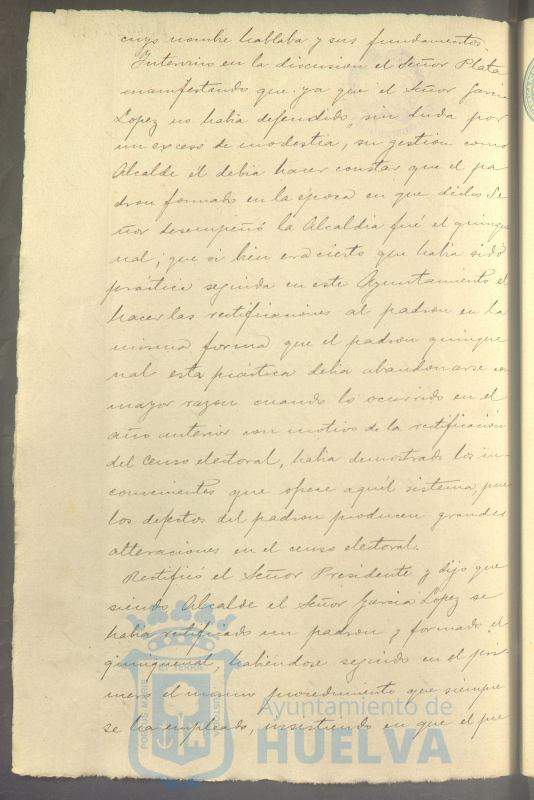 cuyo nombre hablaba y sus fundamentos.
Intervino en la discusion el Señor Plata
manifestando que ya que el Señor Garcia
Lopez no habia defendido, sin duda por
un exceso de modestia, su gestion como
Alcalde él debia hacer constar que el pa
dron formado en la época en que dicho Se
ñor desempeñó la Alcaldia fué el quinque
nal; que si bien era cierto que habia sido
práctica seguida en este Ayuntamiento el
hacer las rectificaciones al padron en la
misma forma que el padron quinque
nal esta práctica debia abandonarse con
mayor razon cuando lo ocurrido en el
año anterior con motivo de la rectificación
del Censo electoral, habia demostrado los in-
convenientes que ofrece aquél sistema, pues
los defectos del padron producen grandes
alteraciones en el censo electoral.
Rectificó el Señor Presidente y dijo que
siendo Alcalde el Señor Garcia Lopez se
habia rectificado un padron y formado el
quinquenal, habiéndose seguido en el pri-
mero el mismo procedimiento que siempre
se ha empleado, insistiendo en que el pre
Ayuntamiento de
HUELVA